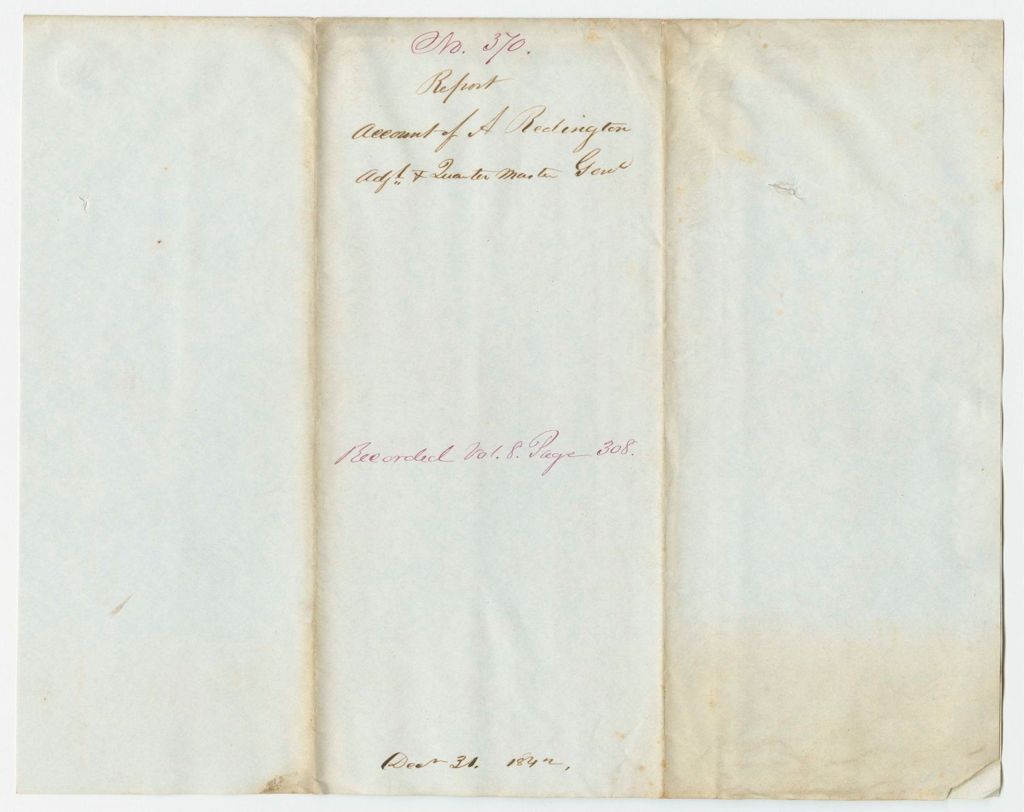 No. 370.
Report
Account of A Redington
Adjt. & Quarter Master Genl
Recorded Vol. 8. Page 308.
Decr 31. 1842.